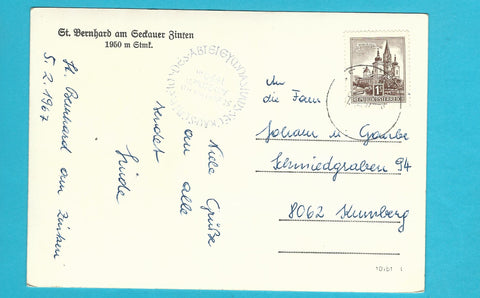 St. Bernhard am Seckauer Zinken
1950 m Stmk.
St. Bernhard am Zinken
5. 2. 1967
Viele Grüße
an alle
sendet
Linde
An
die Fam.
Johann u.
Schmiedgraben 94
8062 Kumberg
REPUBLIK ÖSTERREICH